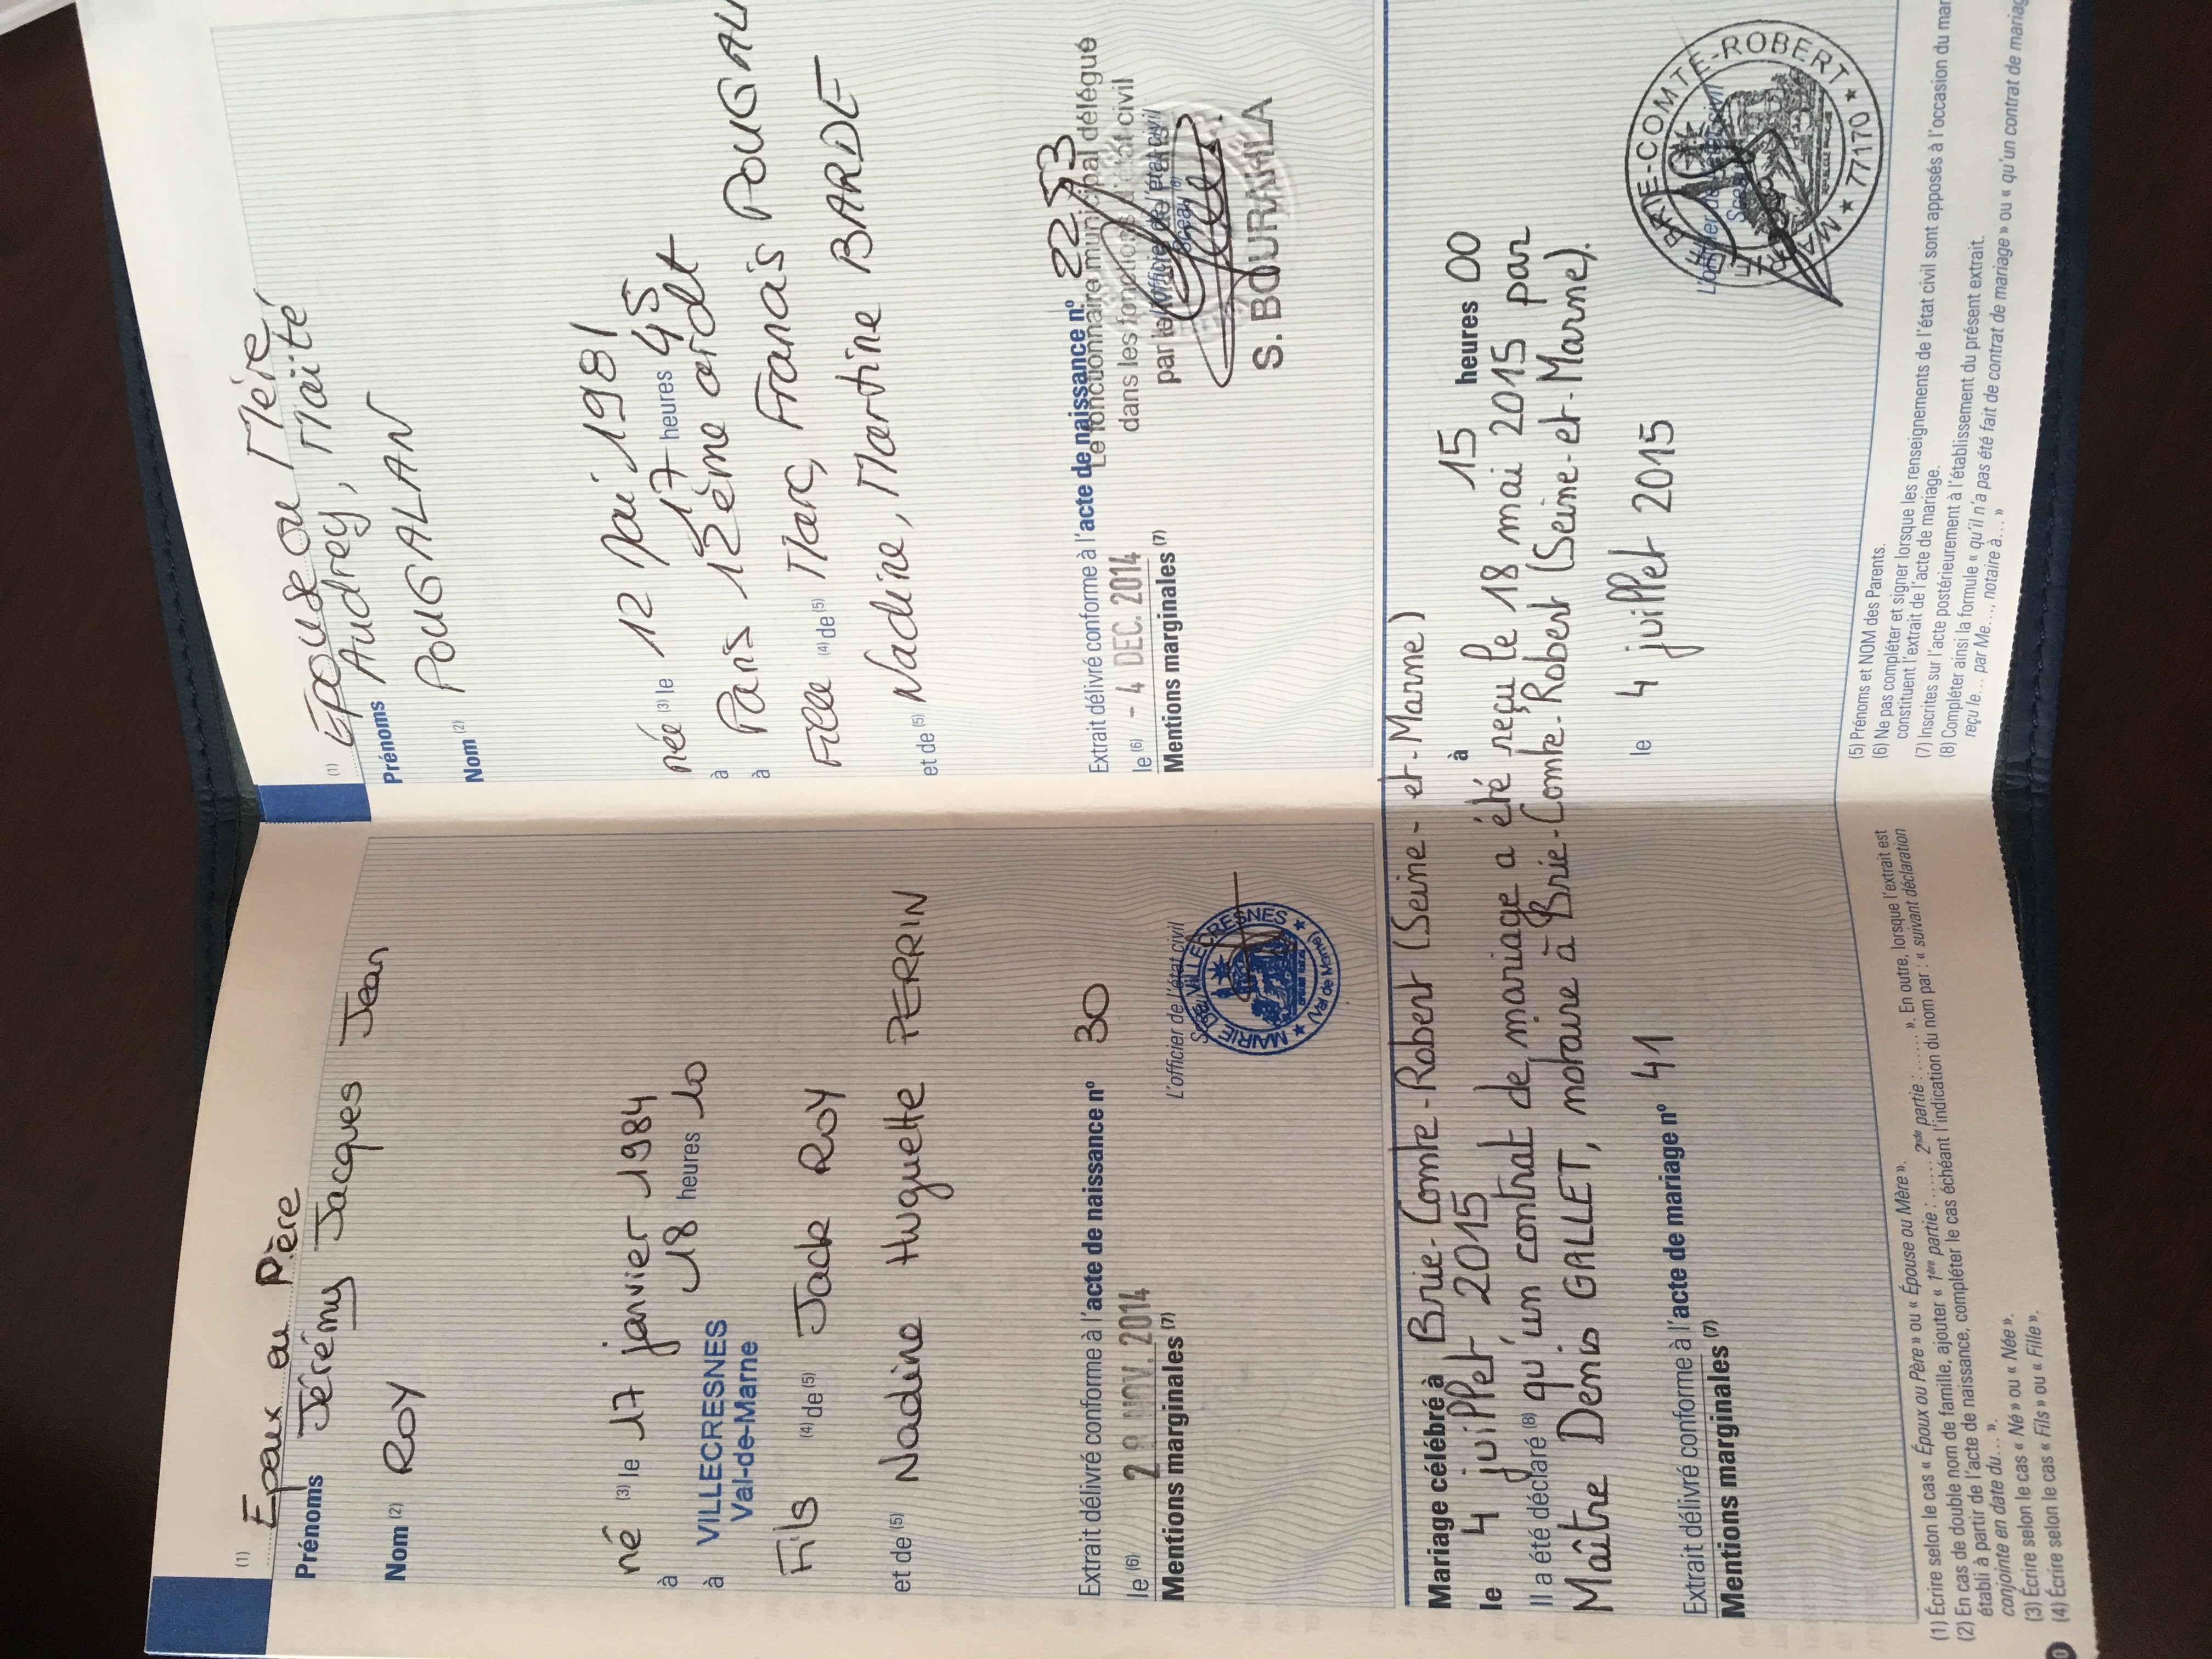 (1) Epoux ou Père
Prénoms Jérémy Jacques Jean
Nom (2) ROY
né (3) le 17 janvier 1984
à 18 heures 10
à VILLECRESNES
Val-de-Marne
Fils (4) de (5) Jack ROY
et de (5) Nadine Huguette PERRIN
Extrait délivré conforme à l'acte de naissance n° 30
le (6) 28 NOV. 2014
Mentions marginales (7)
L'officier de l'état civil
Sceau
MAIRIE DE VILLECRESNES
(Val de Marne)
(1) Epouse ou Mère
Prénoms Audrey, Maïté
Nom (2) POUGALAN
née (3) le 12 Mai 1981
à 17 heures 45
à Paris 12ème ardt
Fille (4) de (5) Marc, Franais POUGAL
et de (5) Nadine, Martine BARDE
Extrait délivré conforme à l'acte de naissance n° 2253
le (6) - 4 DEC. 2014
Mentions marginales (7)
Le fonctionnaire municipal délégué
dans les fonctions d'état civil
par l'officier de l'état civil
Sceau (6)
S. BOURAHLA
Mariage célébré à Brie-Comte-Robert (Seine-et-Marne)
le 4 juillet 2015 à 15 heures 00
Il a été déclaré (8) qu'un contrat de mariage a été reçu le 18 mai 2015 par
Maître Denis GALLET, notaire à Brie-Comte-Robert (Seine-et-Marne).
Extrait délivré conforme à l'acte de mariage n° 41 le 4 juillet 2015
Mentions marginales (7)
L'officier de l'état civil
Sceau
MAIRIE BRIE-COMTE-ROBERT
★ 77170 ★
(1) Écrire selon le cas « Époux ou Père » ou « Épouse ou Mère ».
(2) En cas de double nom de famille, ajouter « 1ère partie : ....... 2nde partie : ....... ». En outre, lorsque l'extrait est
établi à partir de l'acte de naissance, compléter le cas échéant l'indication du nom par : « suivant déclaration
conjointe en date du... ».
(3) Écrire selon le cas « Né » ou « Née ».
(4) Écrire selon le cas « Fils » ou « Fille ».
(5) Prénoms et NOM des Parents.
(6) Ne pas compléter et signer lorsque les renseignements de l'état civil sont apposés à l'occasion du mar
constituent l'extrait de l'acte de mariage.
(7) Inscrites sur l'acte postérieurement à l'établissement du présent extrait.
(8) Compléter ainsi la formule « qu'il n'a pas été fait de contrat de mariage » ou « qu'un contrat de mariag
reçu le... par Me..., notaire à... »